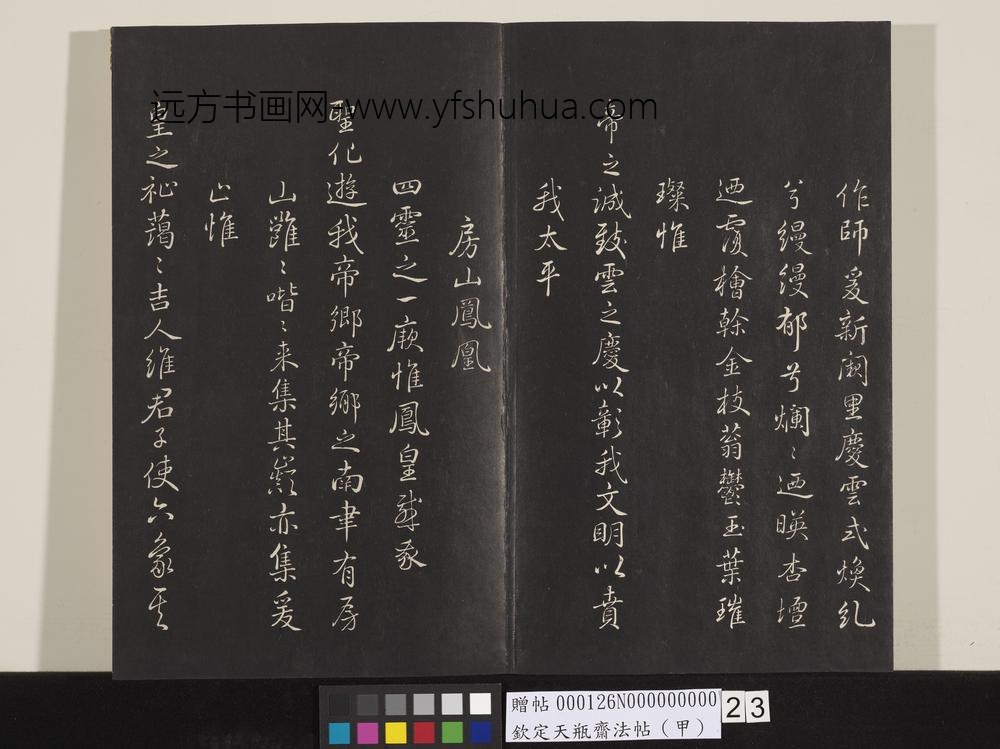 作師爰新闕里慶雲式煥糺
兮縵縵郁兮爛〻迺暎杏壇
迺覆檜榦金枝蓊鬱玉葉璀
璨惟
帝之誠致雲之慶以彰我文明以賁
我太平
房山鳳凰
四靈之一厥惟鳳皇感
聖化遊我帝鄉帝鄉之南聿有房
山雝〻喈〻来集其巔亦集爰
止惟
皇之祉藹〻吉人維君子使亦象其
远方书画网-www.yfshuhua.com
贈帖 000126N000000000 23
欽定天瓶齋法帖（甲）